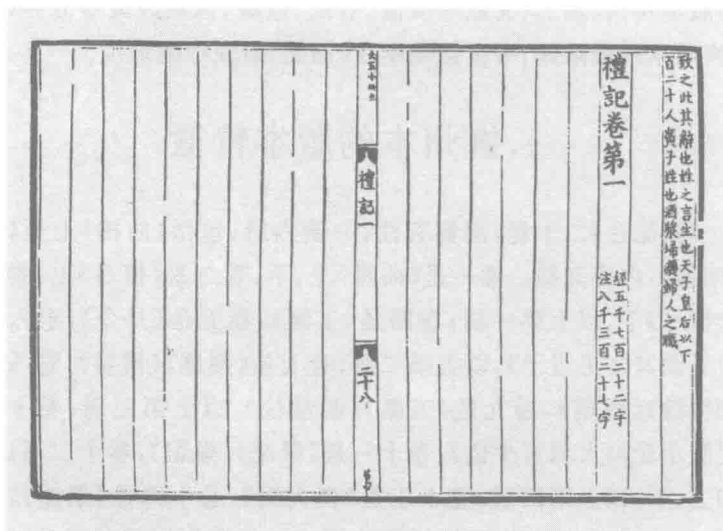 致之此其辭也姓之言生也天子皇后以下
百二十人廣子姓也酒漿埽灑婦人之職
禮記卷第一
經五千七百二十二字
注八千三百二十七字
禮記一
二十八